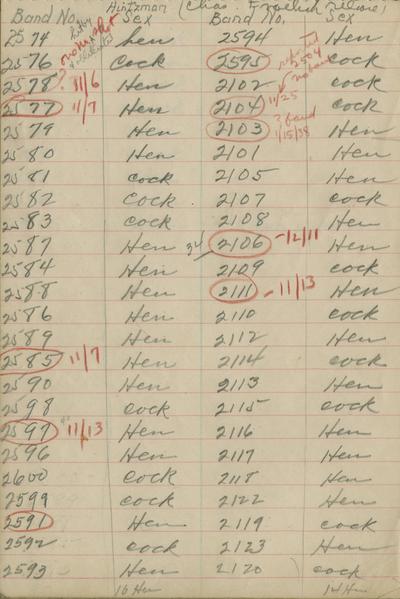 Hintzman (Chas. Froelich
Band No. Sex Band No. Sex
2574 hen 2594 Hen
2576 Cock 2595 Cock
2578? 11/6 Hen 2102 cock
2577 11/7 Hen 2104 11/25 cock
2579 Hen 2103 ? band 1/15/38 Hen
2580 Hen 2101 Hen
2581 cock 2105 Hen
2582 Cock 2107 cock
2583 cock 2108 Hen
2587 Hen 34 2106 -12/11 Hen
2584 Hen 2109 cock
2588 Hen 2111 - 11/13 Hen
2586 Hen 2110 cock
2589 Hen 2112 Hen
2585 11/7 Hen 2114 cock
2590 Hen 2113 Hen
2598 cock 2115 cock
2597 11/13 Hen 2116 Hen
2596 Hen 2117 Hen
2600 Cock 2118 Hen
2599 cock 2122 Hen
2591 Hen 2119 cock
2592 cock 2123 Hen
2593 Hen 2120 cock
16 Hen 14 Hen